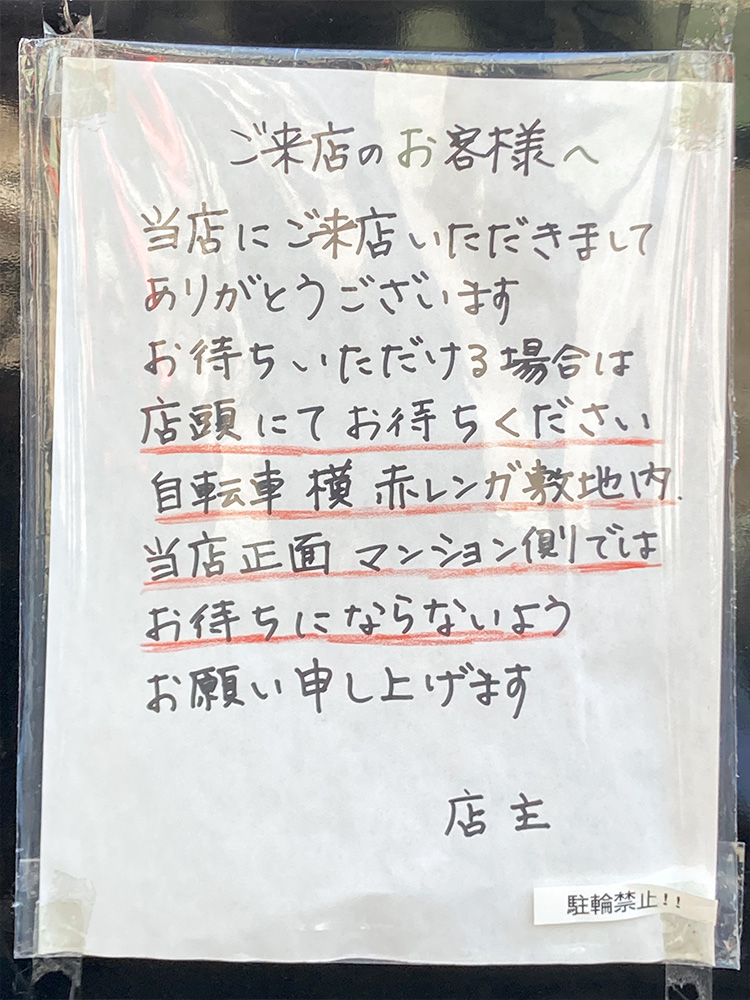 ご来店のお客様へ
当店にご来店いただきまして
ありがとうございます
お待ちいただける場合は
店頭にてお待ちください
自転車 横 赤レンガ敷地内.
当店正面 マンション側では
お待ちにならないよう
お願い申し上げます
店主
駐輪禁止!!